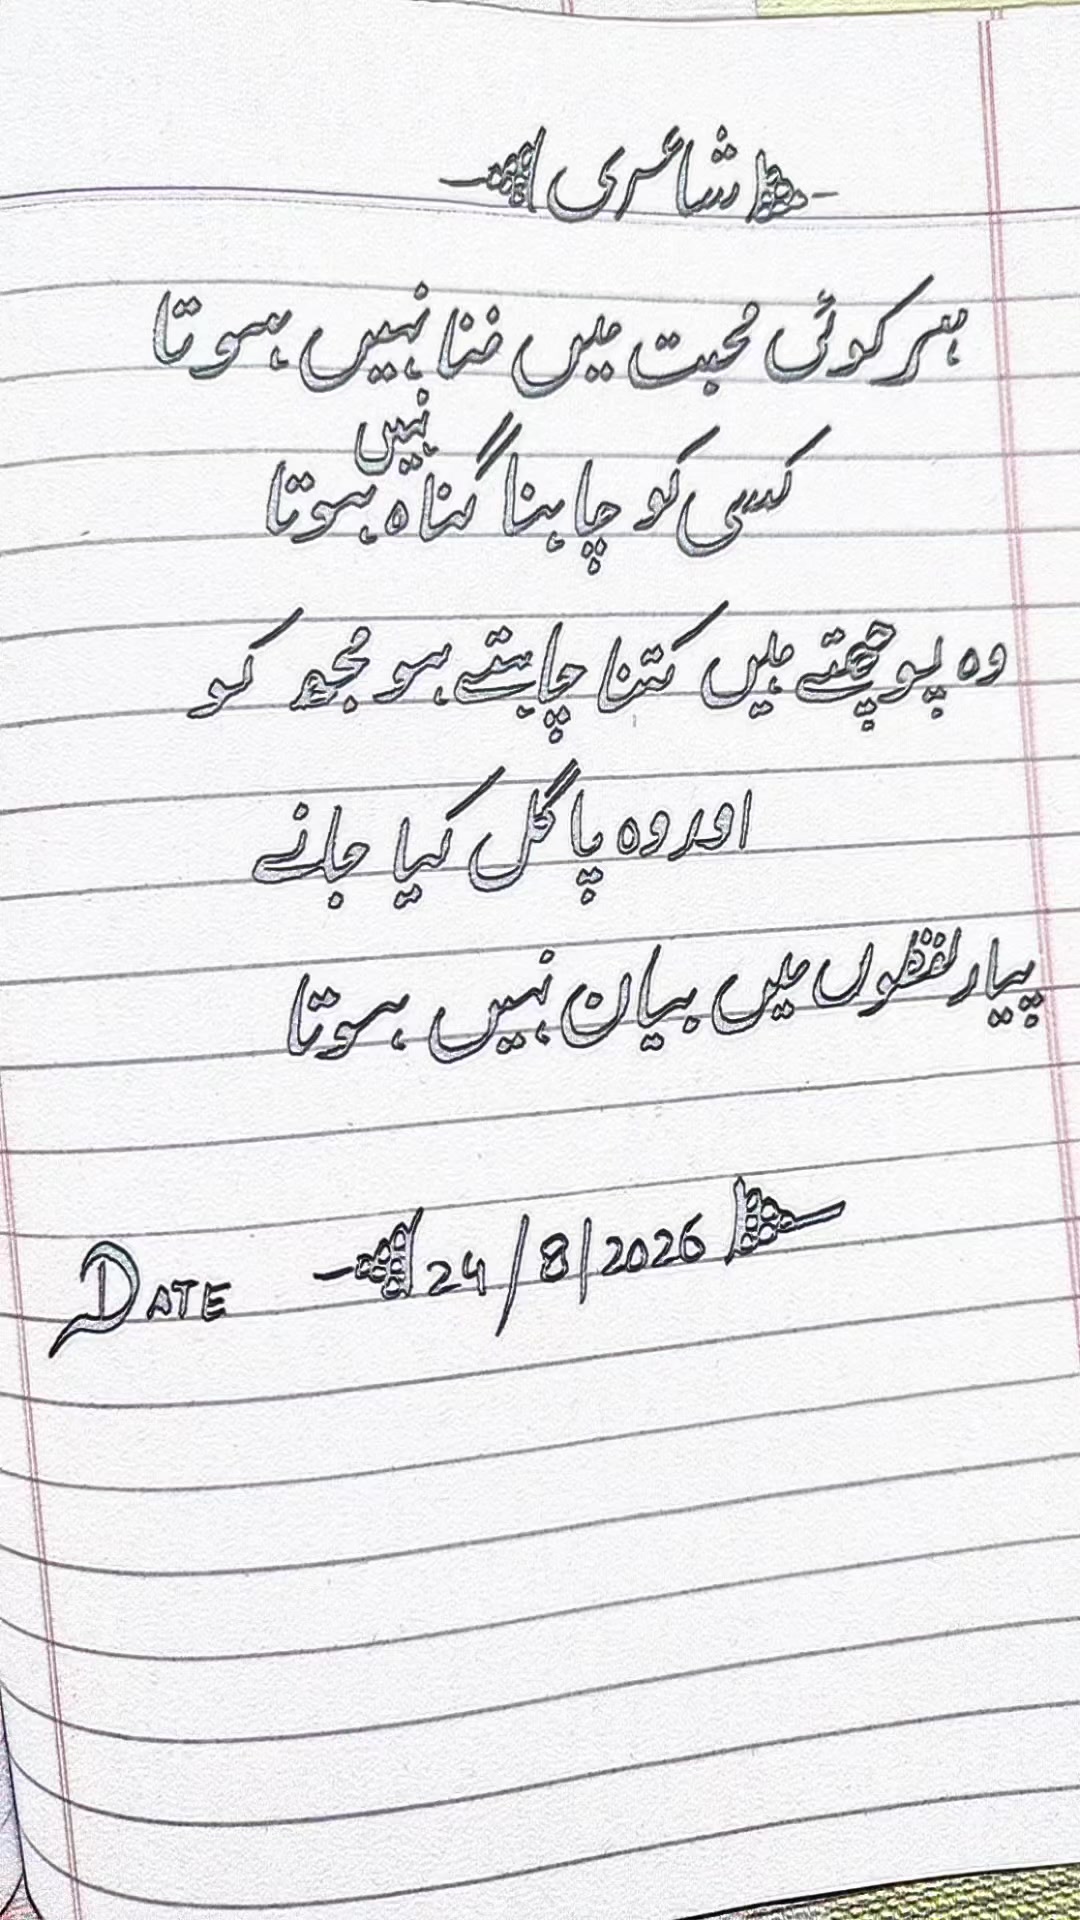 شاعری
ہر کوئی محبت میں فنا نہیں ہوتا
کسی کو چاہنا گناہ نہیں ہوتا
وہ پوچھتے ہیں کتنا چاہتے ہو مجھ کو
اور وہ پاگل کیا جانے
پیار لفظوں میں بیان نہیں ہوتا
DATE 24/8/2026